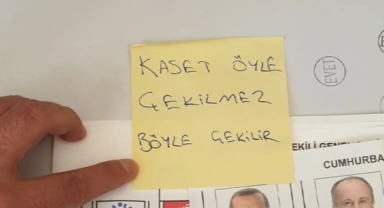 KASET ÖYLE
ÇEKİLMEZ
BÖYLE ÇEKİLİR
EVET
EKİLİ GENEL
CUMHURBA